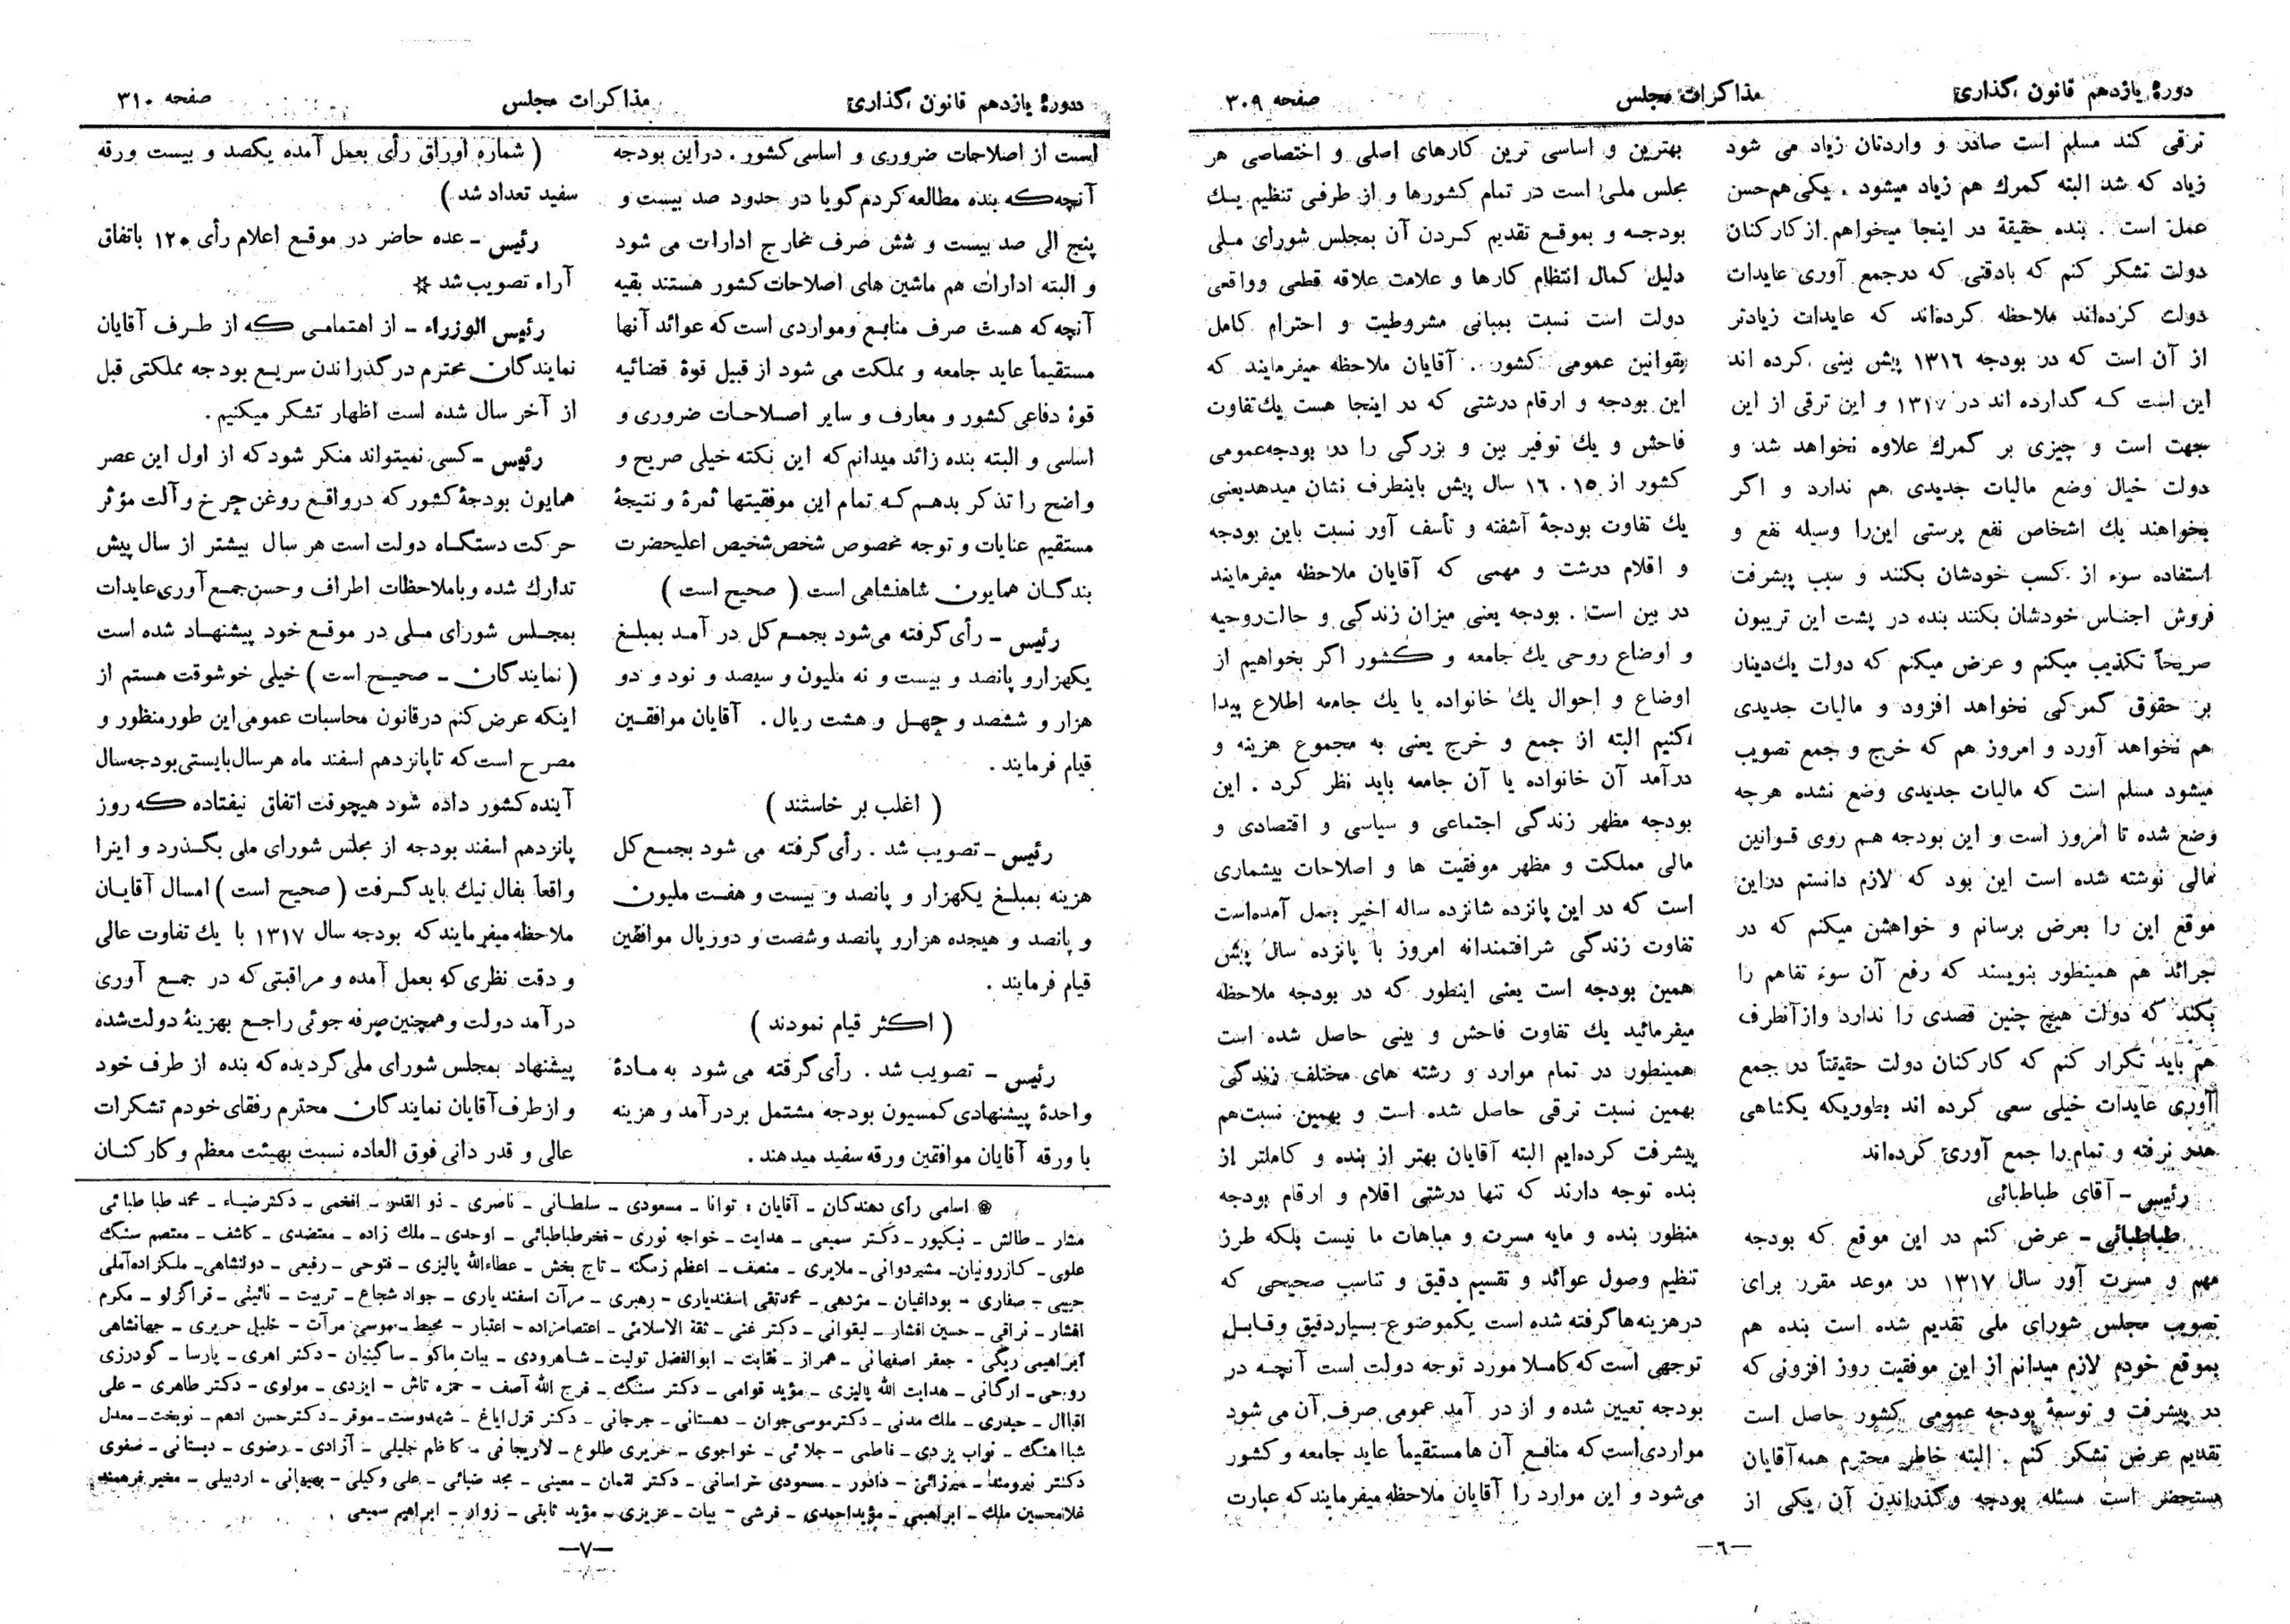 دورهٔ یازدهم قانون گذاری
مذاکرات مجلس
صفحه ۳۰۹
ترقی کند مسلم است صادر و وارد‌تان زیاد می شود
زیاد که شد البته گمرك هم زیاد میشود . یکی هم حسن
عمل است . بنده حقیقة در اینجا میخواهم از کارکنان
دولت تشکر کنم که بادقتی که درجمع آوری عایدات
دولت کرده‌اند ملاحظه کرده‌اند که عایدات زیادتر
از آن است که در بودجه ۱۳۱۶ پیش بینی کرده اند
این است که گذارده اند در ۱۳۱۷ و این ترقی از این
جهت است و چیزی بر گمرك علاوه نخواهد شد و
دولت خیال وضع مالیات جدیدی هم ندارد و اگر
بخواهند یك اشخاص نفع پرستی این‌را وسیله نفع و
استفاده سوء از کسب خودشان بکنند و سبب پیشرفت
فروش اجناس خودشان بکنند بنده در پشت این تریبون
صریحاً تکذیب میکنم و عرض میکنم که دولت یك‌دینار
بر حقوق گمرکی نخواهد افزود و مالیات جدیدی
هم نخواهد آورد و امروز هم که خرج و جمع تصویب
میشود مسلم است که مالیات جدیدی وضع نشده هرچه
وضع شده تا امروز است و این بودجه هم روی قوانین
مالی نوشته شده است این بود که لازم دانستم دراین
موقع این را بعرض برسانم و خواهش میکنم که در
جرائد هم همینطور بنویسند که رفع آن سوء تفاهم را
بکند که دولت هیچ چنین قصدی را ندارد وازآنطرف
هم باید تکرار کنم که کارکنان دولت حقیقتاً در جمع
آوری عایدات خیلی سعی کرده اند بطوریکه یکشاهی
هدر نرفته و تمام را جمع آوری کرده‌اند
رئیس - آقای طباطبائی
طباطبائی - عرض کنم در این موقع که بودجه
مهم و مسرت آور سال ۱۳۱۷ در موعد مقرر برای
تصویب مجلس شورای ملی تقدیم شده است بنده هم
بموقع خودم لازم میدانم از این موفقیت روز افزونی که
در پیشرفت و توسعهٔ بودجه عمومی کشور حاصل است
تقدیم عرض تشکر کنم . البته خاطر محترم همه آقایان
مستحضر است مسئله بودجه و گذراندن آن یکی از
بهترین و اساسی ترین کارهای اصلی و اختصاصی هر
مجلس ملی است در تمام کشورها و از طرفی تنظیم یك
بودجه و بموقع تقدیم کردن آن بمجلس شورای ملی
دلیل کمال انتظام کارها و علامت علاقه قطعی وواقعی
دولت است نسبت بمبانی مشروطیت و احترام کامل
بقوانین عمومی کشور . آقایان ملاحظه میفرمایند که
این بودجه و ارقام درشتی که در اینجا هست یك‌تفاوت
فاحش و یك توفیر بین و بزرگی را در بودجه‌عمومی
کشور از ۱۵ . ۱۶ سال پیش باینطرف نشان میدهدیعنی
یك تفاوت بودجهٔ آشفته و تأسف آور نسبت باین بودجه
و اقلام درشت و مهمی که آقایان ملاحظه میفرمایند
در بین است . بودجه یعنی میزان زندگی و حالت‌روحیه
و اوضاع روحی یك جامعه و کشور اگر بخواهیم از
اوضاع و احوال یك خانواده یا یك جامعه اطلاع پیدا
کنیم البته از جمع و خرج یعنی به مجموع هزینه و
درآمد آن خانواده یا آن جامعه باید نظر کرد . این
بودجه مظهر زندگی اجتماعی و سیاسی و اقتصادی و
مالی مملکت و مظهر موفقیت ها و اصلاحات بیشماری
است که در این پانزده شانزده ساله اخیر بعمل آمده‌است
تفاوت زندگی شرافتمندانه امروز با پانزده سال پیش
همین بودجه است یعنی اینطور که در بودجه ملاحظه
میفرمائید یك تفاوت فاحش و بینی حاصل شده است
همینطور در تمام موارد و رشته های مختلف زندگی
بهمین نسبت ترقی حاصل شده است و بهمین نسبت‌هم
پیشرفت کرده‌ایم البته آقایان بهتر از بنده و کاملتر از
بنده توجه دارند که تنها درشتی اقلام و ارقام بودجه
منظور بنده و مایه مسرت و مباهات ما نیست بلکه طرز
تنظیم وصول عوائد و تقسیم دقیق و تناسب صحیحی که
درهزینه‌ها گرفته شده است یکموضوع بسیاردقیق وقابل
توجهی است که کاملا مورد توجه دولت است آنچه در
بودجه تعیین شده و از در آمد عمومی صرف آن می شود
مواردی‌است که منافع آن ها مستقیماً عاید جامعه و کشور
می‌شود و این موارد را آقایان ملاحظه میفرمایند که عبارت
—۶—
دورهٔ یازدهم قانون گذاری
مذاکرات مجلس
صفحه ۳۱۰
است از اصلاحات ضروری و اساسی کشور . دراین بودجه
آنچه که بنده مطالعه کردم گویا در حدود صد بیست و
پنج الی صد بیست و شش صرف مخارج ادارات می شود
و البته ادارات هم ماشین های اصلاحات کشور هستند بقیه
آنچه که هست صرف منابع ومواردی است که عوائد آنها
مستقیماً عاید جامعه و مملکت می شود از قبیل قوهٔ قضائیه
قوهٔ دفاعی کشور و معارف و سایر اصلاحات ضروری و
اساسی و البته بنده زائد میدانم که این نکته خیلی صریح و
واضح را تذکر بدهم که تمام این موفقیتها ثمرهٔ و نتیجهٔ
مستقیم عنایات و توجه مخصوص شخص‌شخیص اعلیحضرت
بندگان همایون شاهنشاهی است ( صحیح است )
رئیس - رأی گرفته می‌شود بجمع کل در آمد بمبلغ
یکهزارو پانصد و بیست و نه ملیون و سیصد و نود و دو
هزار و ششصد و چهل و هشت ریال . آقایان موافقین
قیام فرمایند .
( اغلب بر خاستند )
رئیس - تصویب شد . رأی گرفته می شود بجمع کل
هزینه بمبلغ یکهزار و پانصد و بیست و هفت ملیون
و پانصد و هیجده هزارو پانصد وشصت و دوریال موافقین
قیام فرمایند .
( اکثر قیام نمودند )
رئیس - تصویب شد . رأی گرفته می شود به مادهٔ
واحدهٔ پیشنهادی کمسیون بودجه مشتمل بردرآمد و هزینه
با ورقه آقایان موافقین ورقه سفید میدهند .
( شماره اوراق رأی بعمل آمده یکصد و بیست ورقه
سفید تعداد شد )
رئیس - عده حاضر در موقع اعلام رأی ۱۲۰ باتفاق
آراء تصویب شد *
رئیس الوزراء - از اهتمامی که از طرف آقایان
نمایندگان محترم درگذراندن سریع بودجه مملکتی قبل
از آخر سال شده است اظهار تشکر میکنیم .
رئیس - کسی نمیتواند منکر شود که از اول این عصر
همایون بودجهٔ کشور که درواقع روغن چرخ و آلت مؤثر
حرکت دستگاه دولت است هر سال بیشتر از سال پیش
تدارك شده و باملاحظات اطراف وحسن‌جمع آوری عایدات
بمجلس شورای ملی در موقع خود پیشنهاد شده است
( نمایندگان - صحیح است ) خیلی خوشوقت هستم از
اینکه عرض کنم درقانون محاسبات عمومی این طورمنظور و
مصرح است که تاپانزدهم اسفند ماه هرسال بایستی بودجه‌سال
آینده کشور داده شود هیچوقت اتفاق نیفتاده که روز
پانزدهم اسفند بودجه از مجلس شورای ملی بگذرد و اینرا
واقعاً بفال نیك باید گرفت ( صحیح است ) امسال آقایان
ملاحظه میفرمایند که بودجه سال ۱۳۱۷ با یك تفاوت عالی
و دقت نظری که بعمل آمده و مراقبتی که در جمع آوری
درآمد دولت وهمچنین صرفه جوئی راجع بهزینهٔ دولت‌شده
پیشنهاد بمجلس شورای ملی گردیده که بنده از طرف خود
و ازطرف آقایان نمایندگان محترم رفقای خودم تشکرات
عالی و قدر دانی فوق العاده نسبت بهیئت معظم و کارکنان
* اسامی رأی دهندگان - آقایان : توانا - مسعودی - سلطانی - ناصری - ذو القدر - افخمی - دکترضیاء - محمد طبا طبائی
مشار - طالش - نیکپور - دکتر سمیعی - هدایت - خواجه نوری - فخرطباطبائی - اوحدی - ملك زاده - معتضدی - کاشف - معتصم سنگ
علوی - کازرونیان - مشیردوانی - ملایری - منصف - اعظم زنگنه - تاج بخش - عطاءالله پالیزی - فتوحی - رفیعی - دولتشاهی - ملکزاده‌آملی
حبیبی - صفاری - بوداغیان - مژدهی - محمدتقی اسفندیاری - رهبری - مرآت اسفندیاری - جواد شجاع - تربیت - نائینی - قراگزلو - مکرم
افشار - نراقی - حسین افشار - لیقوانی - دکتر غنی - ثقة الاسلامی - اعتصام‌زاده - اعتبار - محیط - موسی مرآت - خلیل حریری - جهانشاهی
ابراهیمی ریگی - جعفر اصفهانی - همراز - نقابت - ابوالفضل تولیت - شاهرودی - بیات ماکو - ساگینیان - دکتر اهری - پارسا - گودرزی
روحی - ارگانی - هدایت الله پالیزی - مؤید قوامی - دکتر سنگ - فرج الله آصف - حمزه تاش - ایزدی - مولوی - دکتر طاهری - علی
اقبال - حیدری - ملك مدنی - دکترموسی‌جوان - دهستانی - جرجانی - دکتر قزل‌ایاغ - شهدوست - موقر - دکترحسن ادهم - نوبخت - معدل
شباهنگ - نواب یزدی - فاطمی - جلائی - خواجوی - حریری طلوع - لاریجانی - کاظم جلیلی - آزادی - رضوی - دبستانی - صفوی
دکتر نیرومند - میرزائی - دادور - مسعودی خراسانی - دکتر لقمان - معینی - مجد ضیائی - علی وکیلی - بهبهانی - اردبیلی - مخبرفرهمند
غلامحسین ملك - ابراهیمی - مؤیداحمدی - فرشی - بیات - عزیزی - مؤید ثابتی - زوار - ابراهیم سمیعی .
—۷—